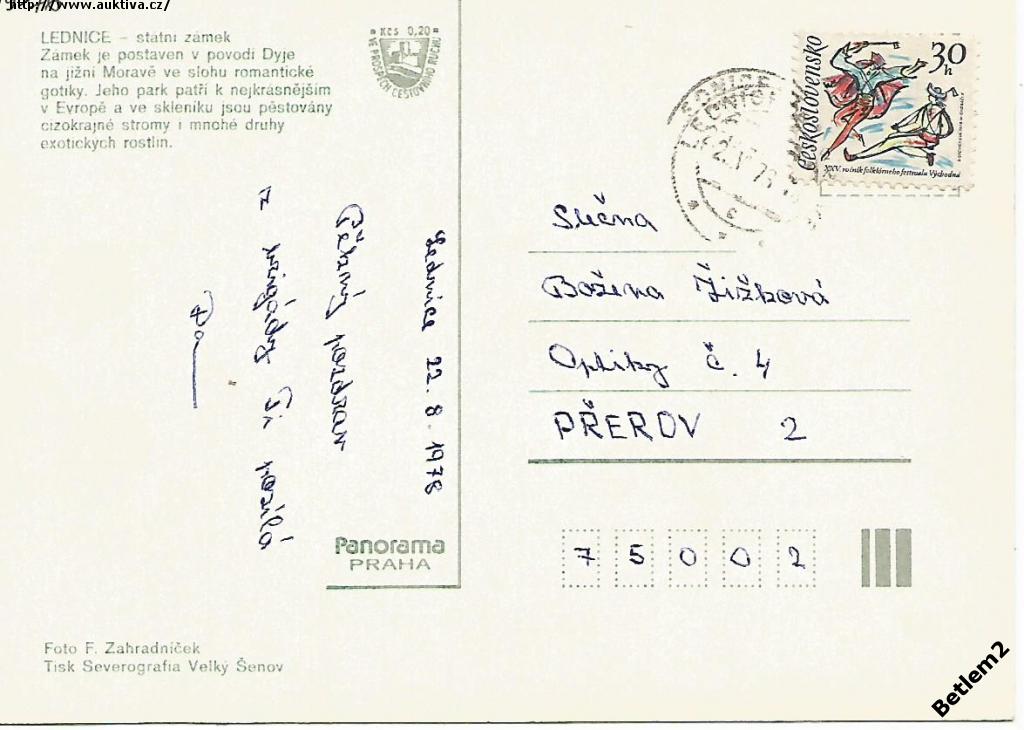 http://www.auktiva.cz/
LEDNICE – státní zámek
Zámek je postaven v povodí Dyje
na jižní Moravě ve slohu romantické
gotiky. Jeho park patří k nejkrásnějším
v Evropě a ve skleníku jsou pěstovány
cizokrajné stromy i mnohé druhy
exotických rostlin.
Kčs 0,20
VE PROSPĚCH CESTOVNÍHO RUCHU
Československo
30 h
XXV. ročník folklórneho festivalu Východná
LEDNICE
Lednice 22. 8. 1978
Pěkný pozdrav
z
Ti posílá
Slečna
Božena Žižková
Optiky č. 4
PŘEROV 2
75002
Panorama
PRAHA
Foto F. Zahradníček
Tisk Severografia Velký Šenov
Betlem2